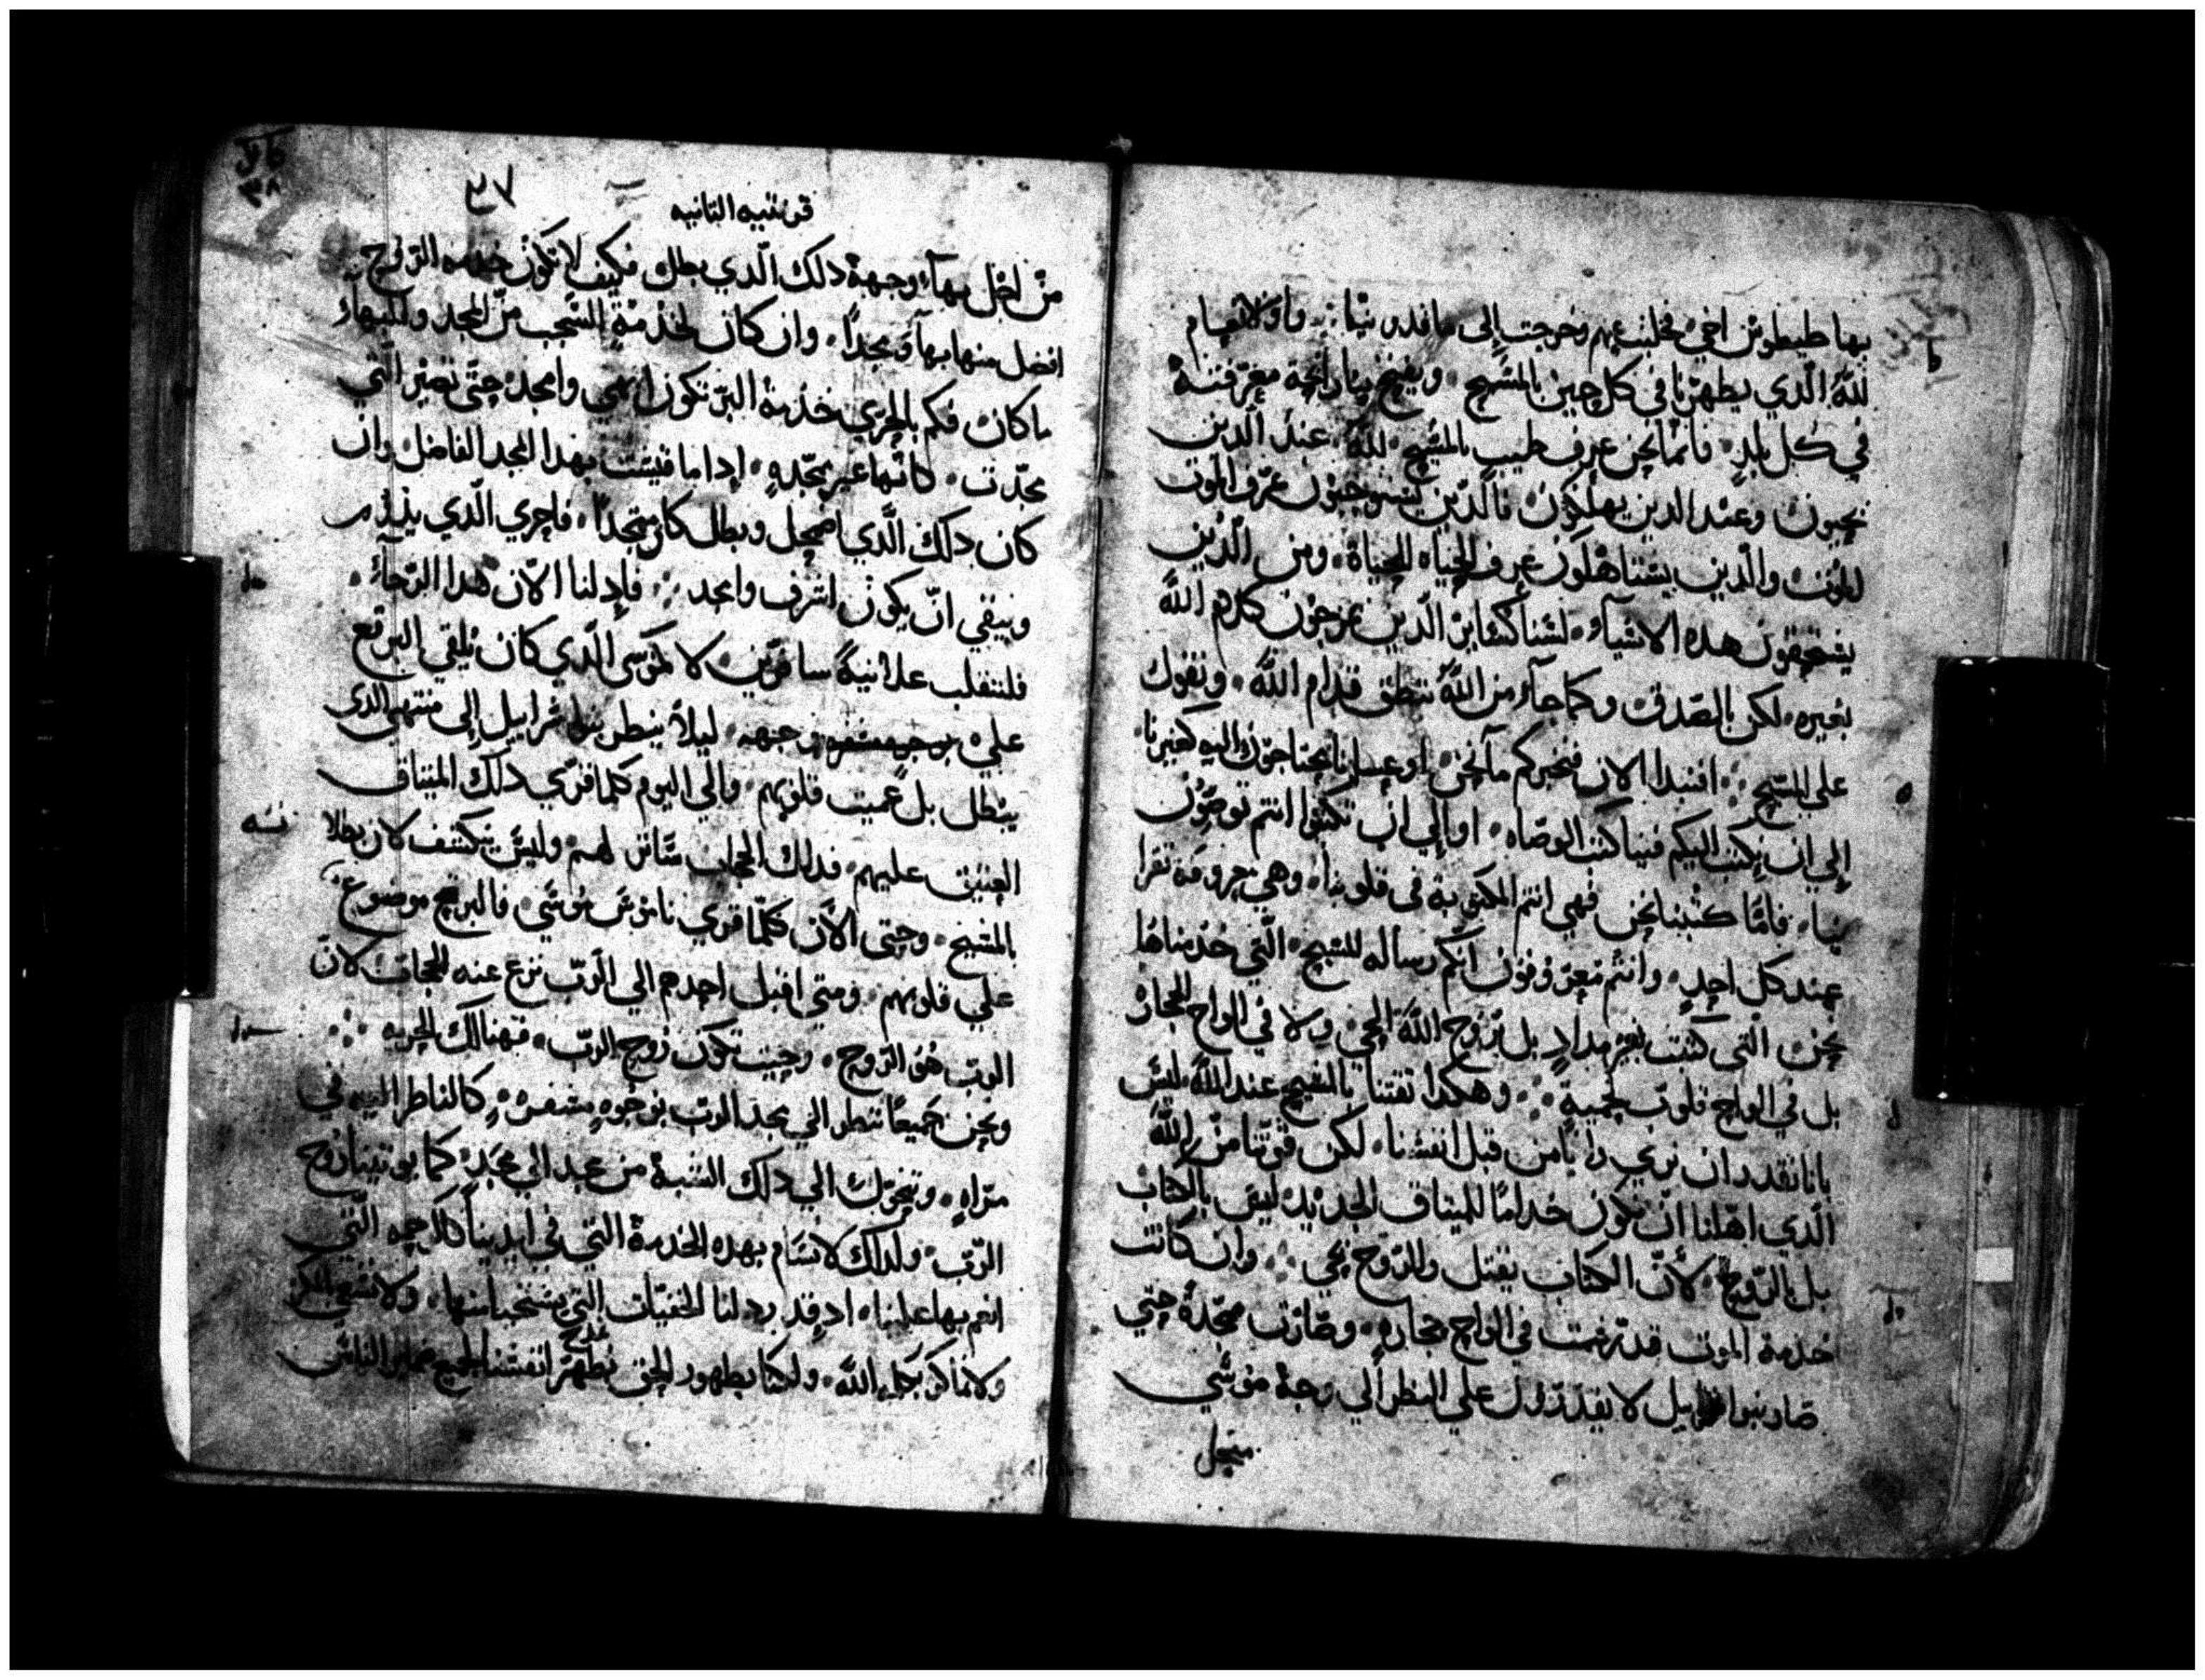 بها طيطوس اخي فخليت عنهم وخرجت إلى ماقدونيا ؞ والانعام
لله الذي يطهرنا في كل حين بالمسيح • ويفيح بنا رائحة معرفته
في كل بلد • فانما نحن عرف طيب بالمسيح لله • عند الدين
يحيون وعند الدين يهلكون فالدين يستوجبون عرف الموت
للموت والدين يستاهلون عرف الحياه للحياة • ومن الدين
يستحقون هده الاشياء • لسنا كسايرن الدين يمزجون كلام الله
بغيره • لكن بالصدق وكما جاء من الله ننطق قدام الله • ونقول
علي المسيح ؞ افنبدا الان فنخبركم ما نحن • او عسانا محتاجون اليه كغيرنا •
إلي ان يكتب اليكم فينا كتب الوصاه • او إلي ان تكتبوا انتم توصون
بنا • فاما كتبنا نحن فهي انتم المكتوبة في قلوبنا • وهي معروفة تقرا
عند كل احد • وانتم معروفون انكم رساله للمسيح • التي خدمناها
نحن التي كتبت بغير مداد بل بروح الله الحي • ولا في الواح الحجارة
بل في الواح قلوب لحمية ؞ وهكدا تقتنا بالمسيح عند الله ليس
بانا نقدر ان نري رايا من قبل انفسنا • لكن قوتنا من الله
الدي اهلنا ان نكون خداما للميتاق الجديد ليس بالكتاب
بل بالروح • لأن الكتاب يقتل والروح يحي ؞ وان كانت
خدمة الموت قد رسمت في الواح حجاره • وصارت ممجدة حتي
صار بنوا اسراييل لا يقدرون علي النظر الي وجه موسي
من اجل
قرنتيه التانيه
٣٧
من اجل بهاء وجهه دلك الدي بطل فكيف لا تكون خدمه الروح
افضل منها بهآء ومجدا • وان كان لخدمة الشجب من المجد والبهاء
ما كان فكم بالحري خدمة البر تكون ابهي وامجد حتي تصير التي
مجدت • كانها غير ممجده • إدا ما قيست بهدا المجد الفاضل وان
كان دلك الدي اضمحل وبطل كان متمجدا • فاحري الدي يدوم
ويبقي ان يكون اشرف وامجد ؞ فاد لنا الان هدا الرجاء •
فلنتقلب علانية سافرين • لا كموسي الدي كان يلقي البرقع
علي وجهه • ليلا ينظر بنوا اسراييل إلي منتهي الدي
يبطل بل عميت قلوبهم • والي اليوم كلما قري دلك الميتاق
العتيق عليهم • فدلك الحجاب ساتر لهم • وليس ينكشف لان بطلا
بالمسيح • وحتي الان كلما قري ناموس موسي • فالبرقع موضوع
علي قلوبهم • ومتي اقبل احدهم الي الرب نزع عنه الحجاب لان
الرب هو الروح • وحيت تكون روح الرب • فهنالك الحريه ؞
ونحن جميعا ننظر الي مجد الرب بوجوه مسفرة • كالناظر اليه في
مراه • ونتحول الي دلك الشبه من مجد الي مجد • كما يوتينا روح
الرب • ولدلك لا نسام بهده الخدمة التي في ايدينا كالرحمه التي
انعم بها علينا • اد قد ردلنا الخفيات التي يستحيا منها • ولا نسعي بالمكر
ولا نماكر بكلام الله • ولكنا بظهور الحق نطهر انفسنا لجميع ضماير الناس